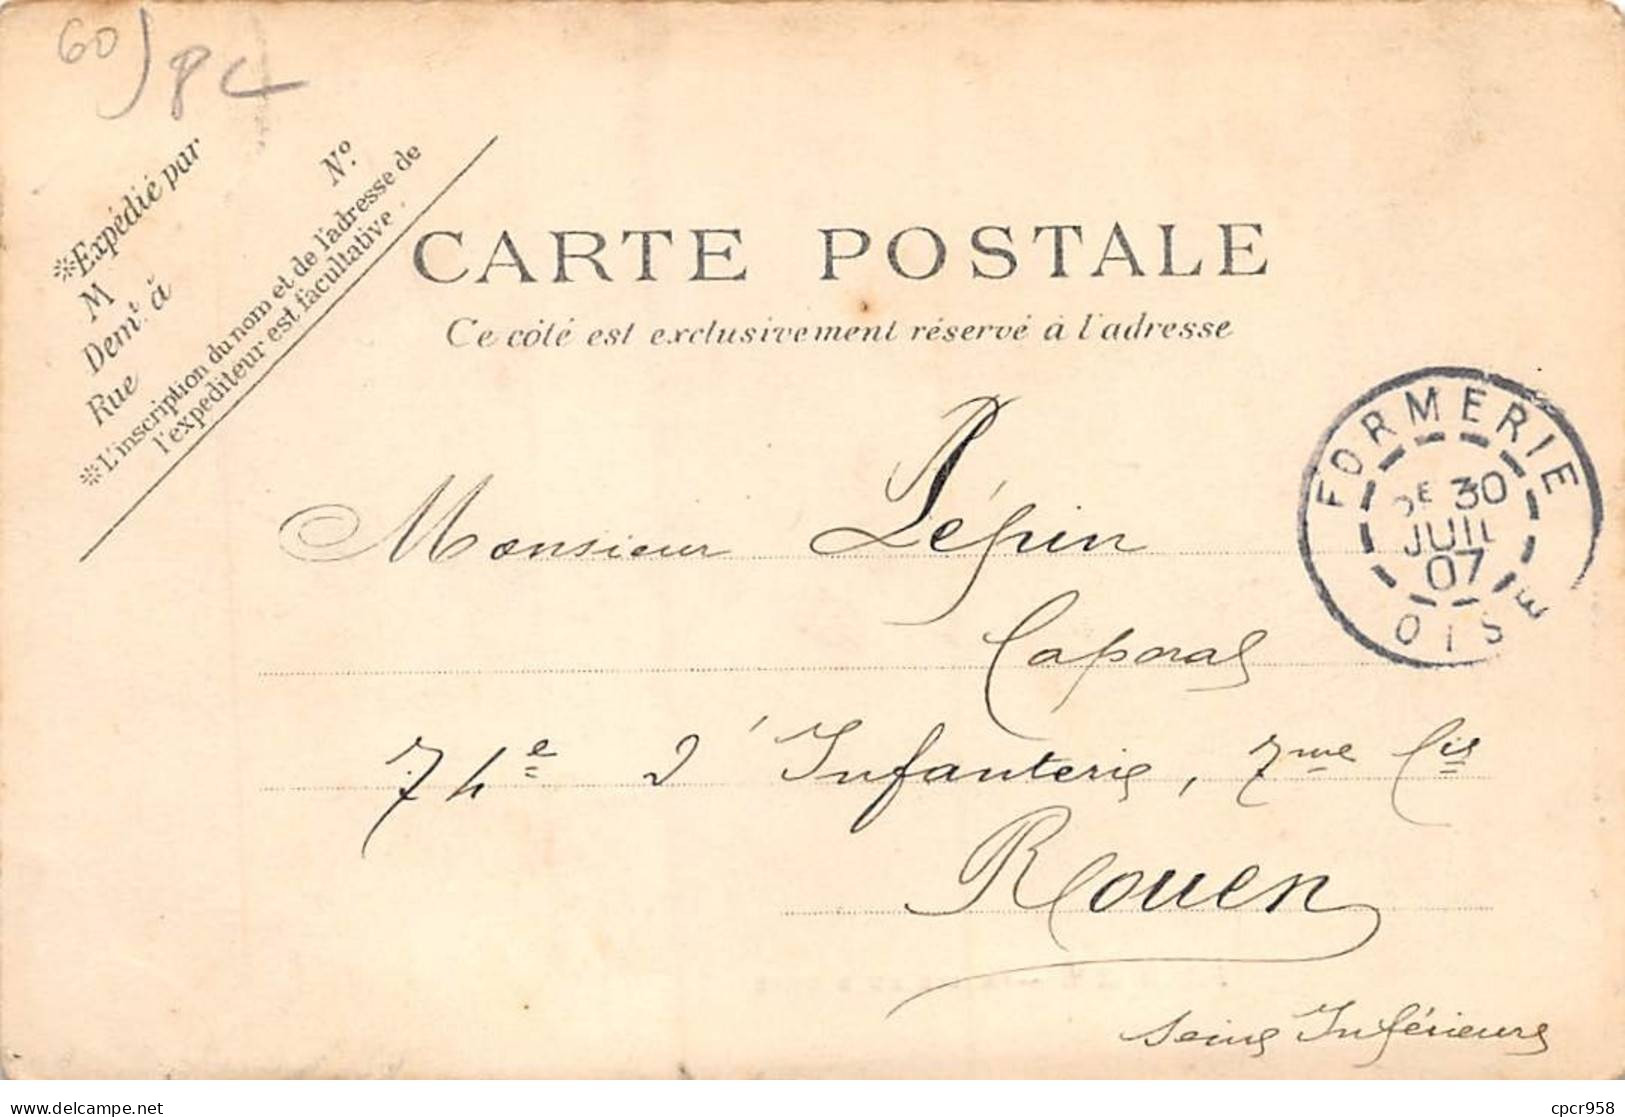 60) PC
※Expédié par
M
Demt. à
Rue
No.
※L'inscription du nom et de l'adresse de
l'expéditeur est facultative.
CARTE POSTALE
Ce côté est exclusivement réservé à l'adresse
FORMERIE
30
JUIL
07
OISE
Monsieur Pépin
Caporal
74e d'Infanterie, 7me Cie
Rouen
Seine Inférieure
delcampe.net
cpcr958